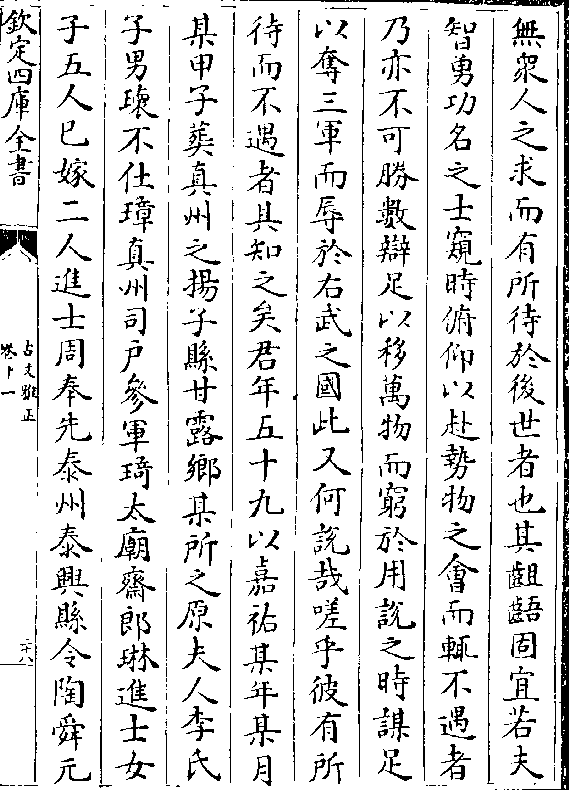 無衆人之求而有所待於後世者也其齟齬固宜若夫
智勇功名之士窺時俯仰以赴勢物之會而輒不遇者
乃亦不可勝數辯足以移萬物而窮於用說之時謀足
以奪三軍而辱於右武之國此又何說哉嗟乎彼有所
待而不遇者其知之矣君年五十九以嘉祐某年某月
某甲子葬真州之揚子縣甘露鄉某所之原夫人李氏
子男瓌不仕璋真州司户參軍琦太廟齋郎琳進士女
子五人已嫁二人進士周奉先泰州泰興縣令陶舜元
欽定四庫全書
古文雅正
卷十一
二十八